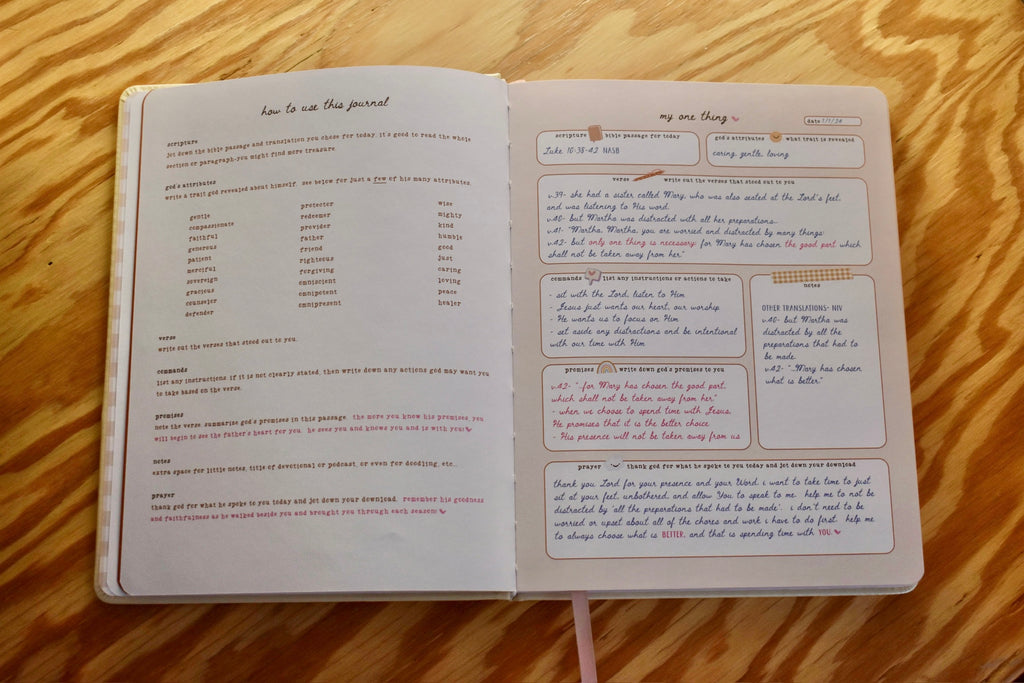 how to use this journal
scripture
jot down the bible passage and translation you chose for today. it's good to read the whole
section or paragraph-you might find more treasure.
god's attributes
write a trait god revealed about himself. see below for just a few of his many attributes.
gentle
compassionate
faithful
generous
patient
merciful
sovereign
gracious
counselor
defender
protector
redeemer
provider
father
friend
righteous
forgiving
omniscient
omnipotent
omnipresent
wise
mighty
kind
humble
good
just
caring
loving
peace
healer
verse
write out the verses that stood out to you.
commands
list any instructions. if it is not clearly stated, then write down any actions god may want you
to take based on the verse.
promises
note the verse. summarize god's promises in this passage. the more you know his promises, you
will begin to see the father's heart for you. he sees you and knows you and is with you!
notes
extra space for little notes, title of devotional or podcast, or even for doodling, etc...
prayer
thank god for what he spoke to you today and jot down your download. remember his goodness
and faithfulness as he walked beside you and brought you through each season!
my one thing
date 1/1/24
scripture bible passage for today
Luke 10:38-42 NASB
god's attributes what trait is revealed
caring, gentle, loving
verse write out the verses that stood out to you
v.39- she had a sister called Mary, who was also seated at the Lord's feet,
and was listening to His word.
v.40- but Martha was distracted with all her preparations...
v.41- "Martha, Martha, you are worried and distracted by many things;
v.42- but only one thing is necessary; for Mary has chosen the good part which
shall not be taken away from her."
commands list any instructions or actions to take
- sit with the Lord, listen to Him
- Jesus just wants our heart, our worship
- He wants us to focus on Him
- set aside any distractions and be intentional
with our time with Him
notes
OTHER TRANSLATIONS- NIV
v.40- but Martha was
distracted by all the
preparations that had to
be made.
v.42- "...Mary has chosen
what is better."
promises write down god's promises to you
v.42- "...for Mary has chosen the good part,
which shall not be taken away from her."
- when we choose to spend time with Jesus,
He promises that it is the better choice
- His presence will not be taken away from us
prayer thank god for what he spoke to you today and jot down your download
thank you Lord for your presence and your Word. i want to take time to just
sit at your feet, unbothered, and allow You to speak to me. help me to not be
distracted by 'all the preparations that had to be made'. i don't need to be
worried or upset about all of the chores and work i have to do first. help me
to always choose what is BETTER, and that is spending time with YOU.